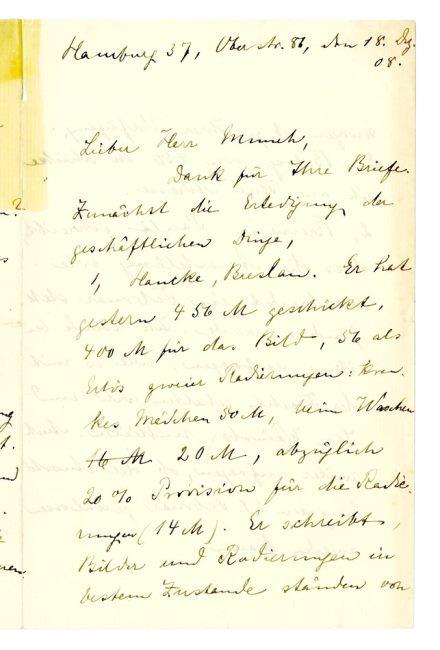 Hamburg 37, Oberstr. 86, den 18. Dez.
08.
Lieber Herr Munch,
Dank für Ihre Briefe.
Zunächst die Erledigung der
geschäftlichen Dinge,
1, Hancke, Breslau. Er hat
gestern 456 M geschickt,
400 M für das Bild, 56 als
Erlös zweier Radierungen: kran-
kes Mädchen 50 M, beim Waschen
16 M 20 M, abzüglich
20% Provision für die Radie-
rungen (14 M). Er schreibt,
Bilder und Radierungen in
bestem Zustande ständen von